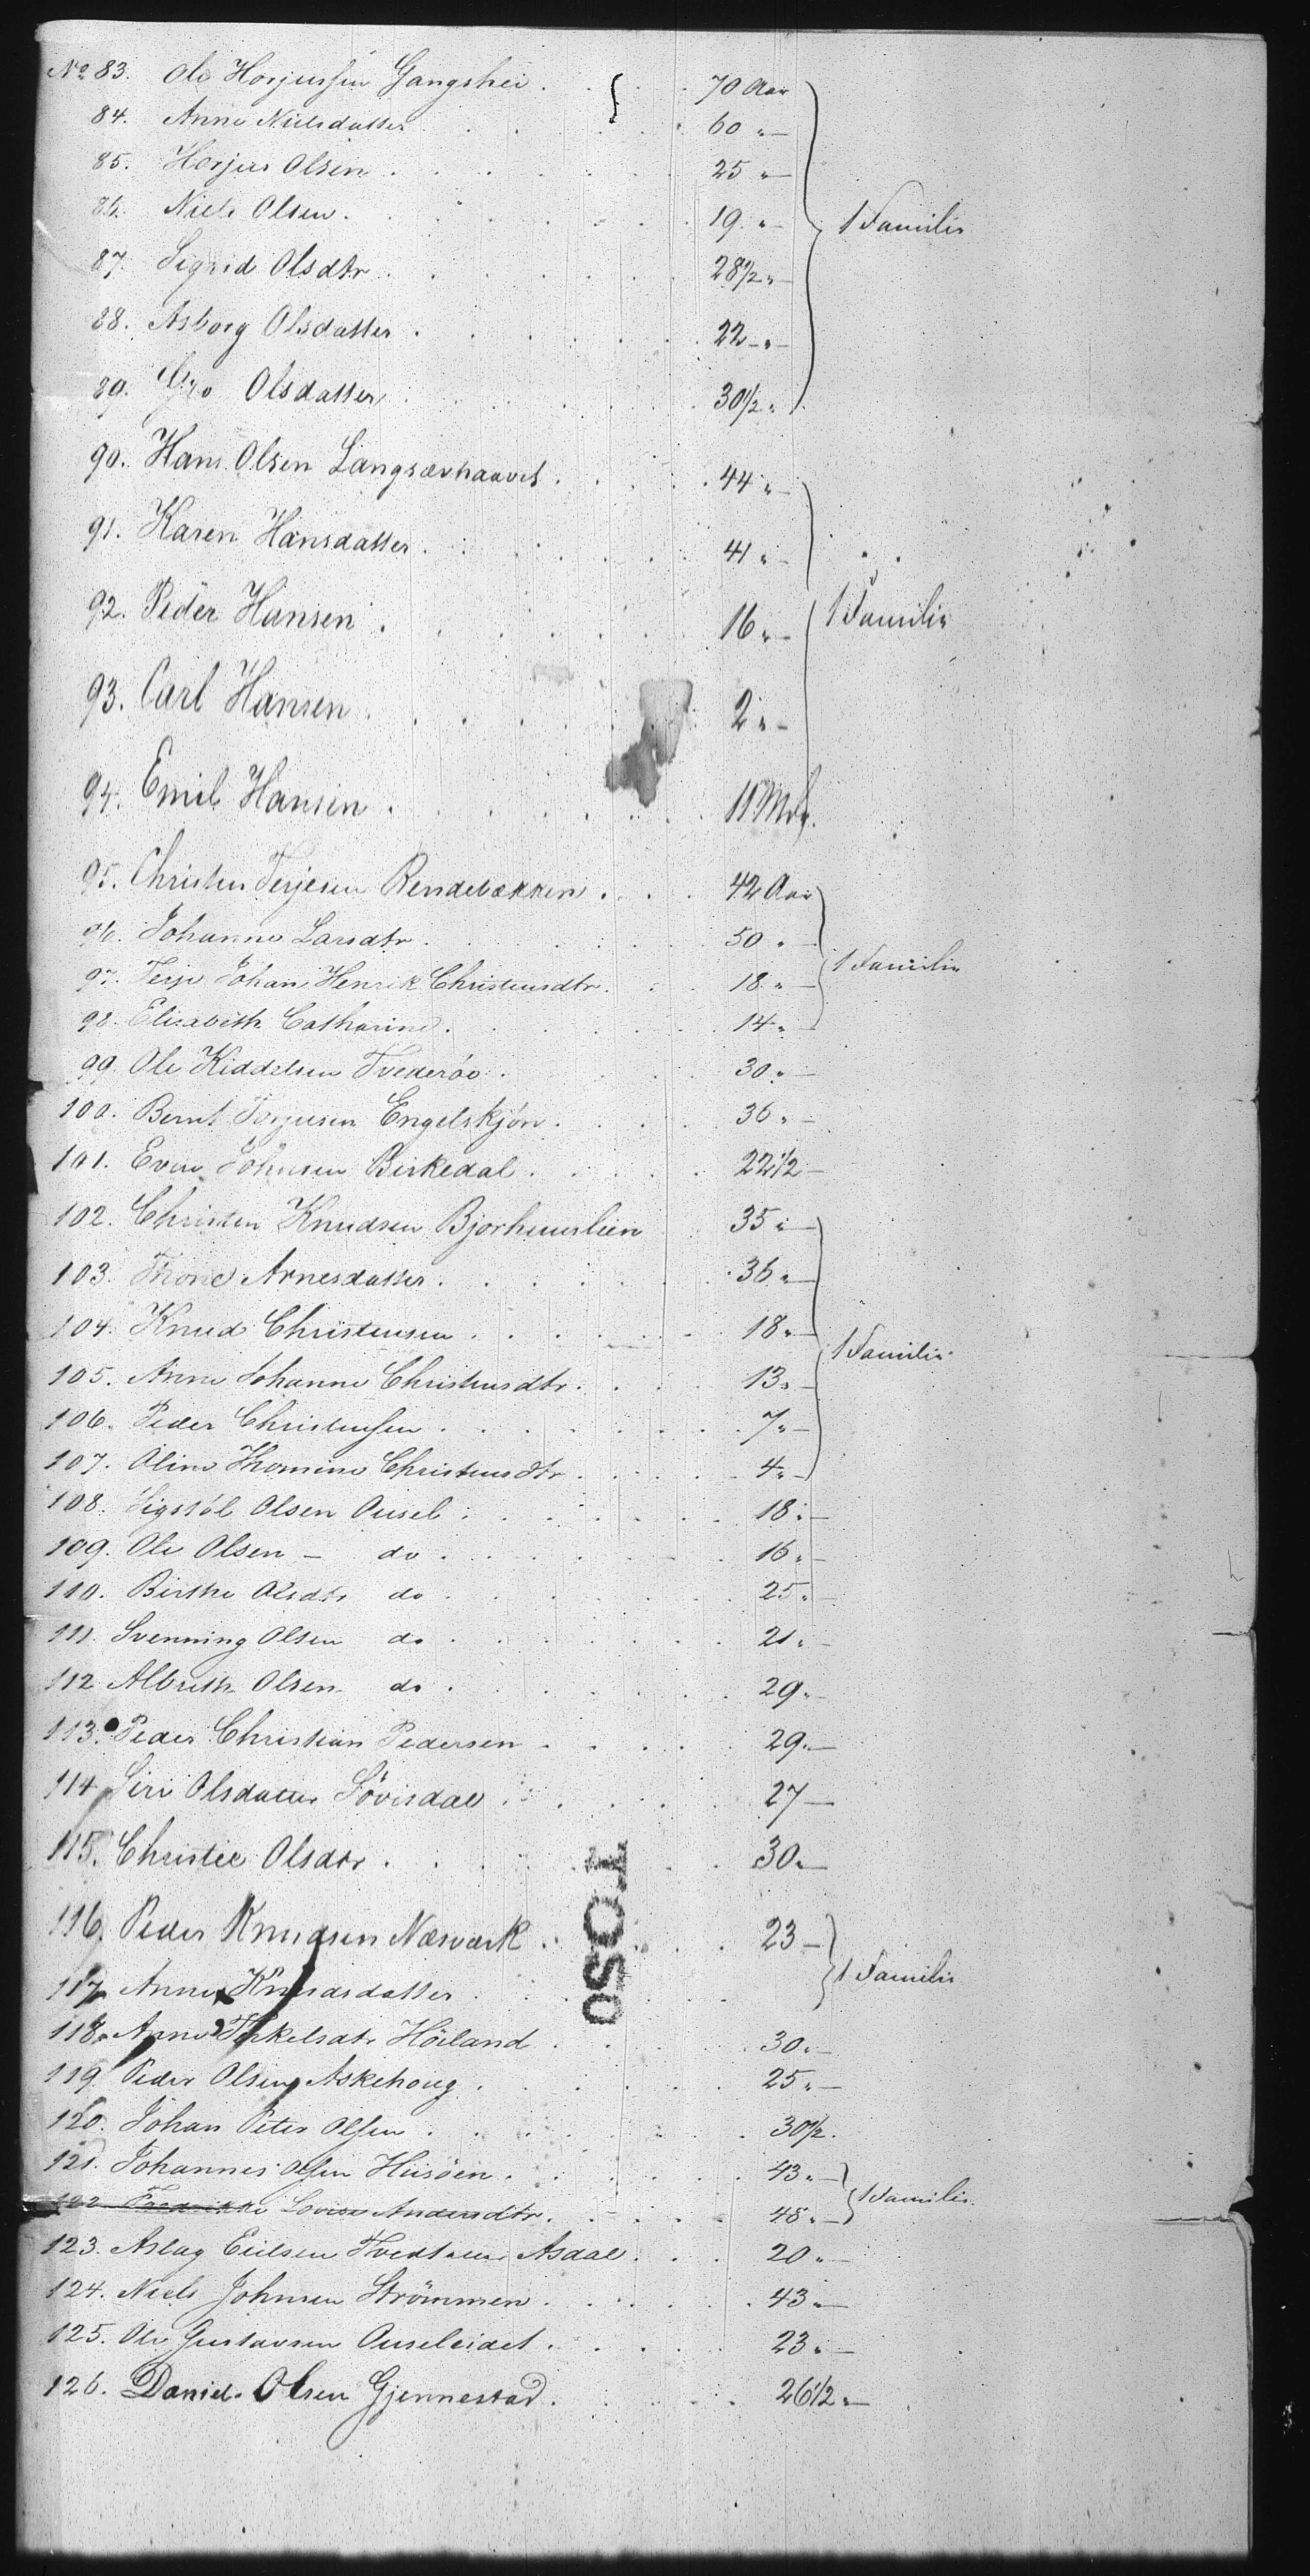 No 83. Ole Horjussen Gangshei . . . 70 Aar
84. Anne Nielsdatter . . . 60 " —
85. Horjus Olsen . . . 25 " —
86. Niels Olsen . . . 19 " — 1 Familie
87. Sigrid Olsdtr . . . 28 1/2 " —
88. Asborg Olsdatter . . . 22 " —
89. Gro Olsdatter . . . 30 1/2 "
90. Hans Olsen Langsævhaavet . . . 44 " —
91. Karen Hansdatter . . . 41 " —
92. Peder Hansen . . . 16 " — 1 Familie
93. Carl Hansen . . . 2 " —
94. Emil Hansen . . . 11 Mdr.
95. Christen Terjesen Rendebækken . . . 42 Aar
96. Johanne Larsdtr . . . 50 " —
97. Terje Johan Henrik Christensdtr . . . 18 " — 1 Familie
98. Elisabeth Catharine . . . 14 " —
99. Ole Kiddelsen Tvederøe . . . 30 " —
100. Bernt Torjusen Engelskjøn . . . 36 " —
101. Even Johnsen Birkedal . . . 22 1/2 —
102. Christen Knudsen 35 " —
103. Thone Arnesdatter . . . 36 " —
104. Knud Christensen . . . 18 " —
1 Familie
105. Anne Johanne Christensdtr . . . 13 " —
106. Peder Christensen . . . 7 " —
107. Oline Thomine Christensdtr . . . 4 " —
108. Olsen Ousel . . . 18 " —
109. Ole Olsen — do . . . 16 " —
110. Birthe Olsdtr do . . . 25 " —
111. Svenning Olsen do . . . 21 " —
112. Albreth Olsen do . . . 29 " —
113. Peder Christian Pedersen . . . 29 " —
114. Siri Olsdatter Løvisdal . . . 27 —
115. Olsdtr . . . 30 " —
116. Peder Knudsen Næsværk . . . 23 —
1 Familie
117. Anne Knudsdatter . . .
118. Anne Terkelsdtr Höiland . . . 30 " —
119. Peder Olsen Askehoug . . . 25 " —
120. Johan Peter Olsen . . . 30 1/2 .
121. Johannes Olsen Husöen . . . 43 " —
1 Familie
122. Fredrikke Lovise Andersdtr . . . 48 " —
123. Aslag Eilsen Asdal . . . 20 " —
124. Niels Johnsen Strömmen . . . 43 " —
125. Ole Gustavsen Ouseleidet . . . 23 " —
126. Daniel Olsen Gjennestad . . . 26 1/2 " —